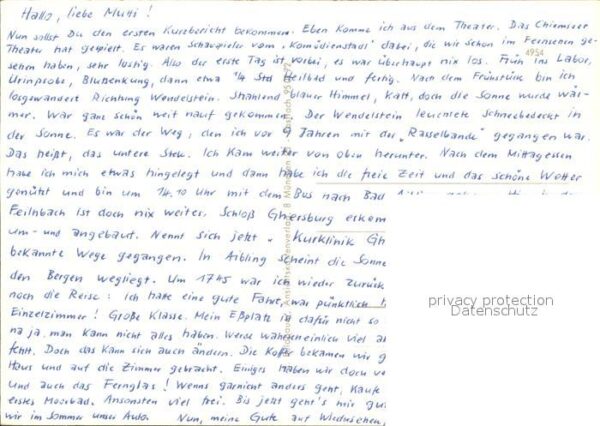 Hallo, liebe Mutti!
Nun sollst Du den ersten Kurzbericht bekommen. Eben komme ich aus dem Theater. Das Chiemseer
Theater hat gespielt. Es waren Schauspieler vom „Komödienstadl" dabei, die wir schon im Fernsehen ge-
4954
sehen haben, sehr lustig. Also der erste Tag ist vorbei, es war überhaupt nix los. Früh ins Labor,
Urinprobe, Blutsenkung, dann etwa ¼ Std Heilbad und fertig. Nach dem Frühstück bin ich
losgewandert Richtung Wendelstein. Strahlend blauer Himmel, kalt, doch die Sonne wurde wär-
mer. War ganz schön weit nauf gekommen. Der Wendelstein leuchtete schneebedeckt in
der Sonne. Es war der Weg, den ich vor 9 Jahren mit der „Rasselbande" gegangen war.
Das heißt, das untere Stck. Ich kam weiter von oben herunter. Nach dem Mittagessen
habe ich mich etwas hingelegt und dann habe ich die freie Zeit und das schöne Wetter
genützt und bin um 14.10 Uhr mit dem Bus nach Bad
Feilnbach ist doch nix weiter. Schloß Ghersburg
um- und angebaut. Nennt sich jetzt „Kurklinik Gh
bekannte Wege gegangen. In Aibling scheint die Sonne
den Bergen wegliegt. Um 17⁴⁵ war ich wieder zurück
noch die Reise: ich hatte eine gute Fahrt, war pünktlich
Einzelzimmer! Große Klasse. Mein Eßplatz ist dafür nicht so
na ja, man kann nicht alles haben. Werde wahrscheinlich viel
fehlt. Doch das kann sich auch ändern. Die Koffer bekamen wir
Haus und auf die Zimmer gebracht. Einiges haben wir doch
und auch das Fernglas! Wenns garnicht anders geht, kaufe
erstes Moorbad. Ansonsten viel frei. Bis jetzt geht's mir gut
wir im Sommer unser Auto. Nun, meine Gute auf Wiedersehen,
privacy protection
Datenschutz